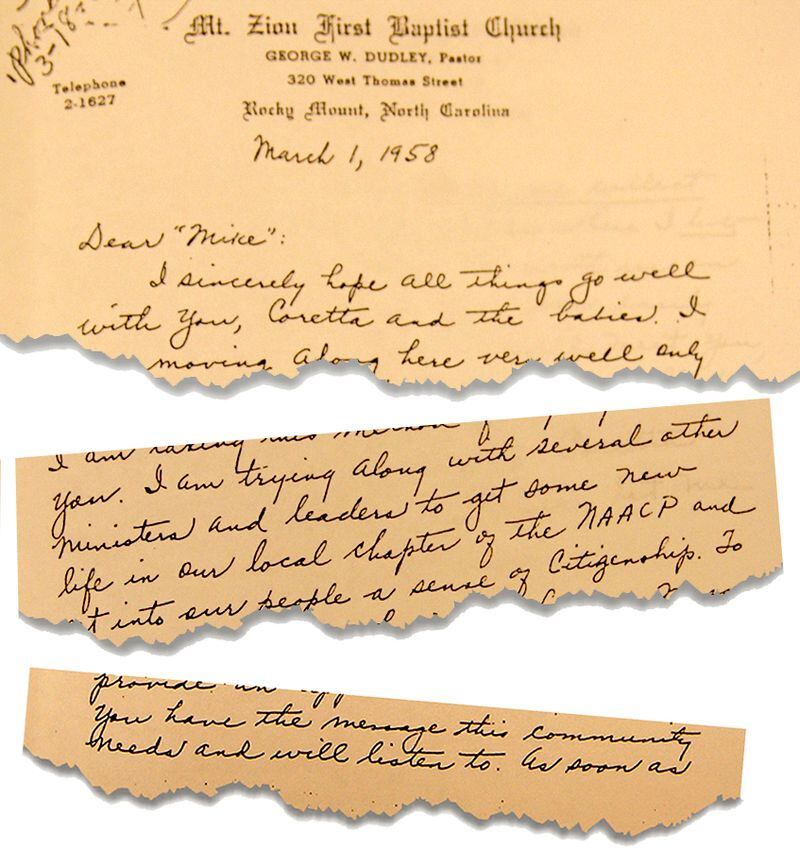 Phone
3-18-
Mt. Zion First Baptist Church
GEORGE W. DUDLEY, Pastor
320 West Thomas Street
Telephone
2-1627
Rocky Mount, North Carolina
March 1, 1958
Dear "Mike":
I sincerely hope all things go well
with you, Coretta and the babies. I
moving along here very well only
I am taking this method of
you. I am trying along with several other
ministers and leaders to get some new
life in our local chapter of the NAACP and
t into our people a sense of Citizenship. To
provide an
You have the message this community
needs and will listen to. As soon as